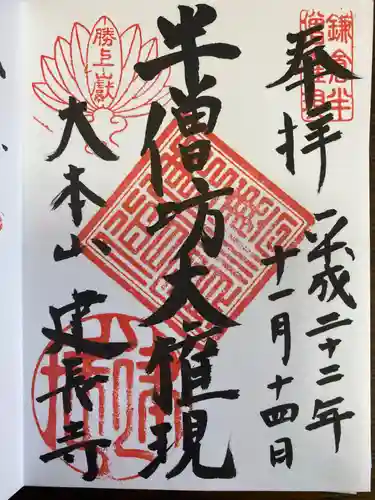 奉拝
平成二十二年
十一月十四日
鎌倉半
僧坊大権現
半僧坊大権現
勝上山献
大本山
建長寺